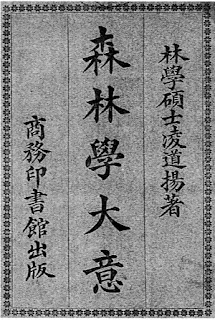 林學碩士凌道揚著
森林學大意
商務印書館出版